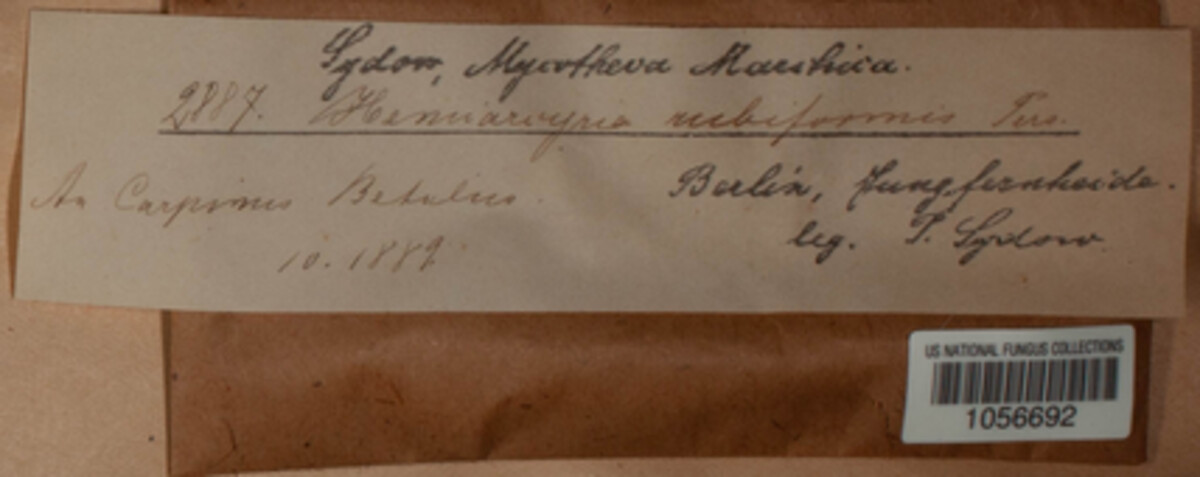 Sydow, Mycotheca Marchica.
2887. Hemiarcyria rubiformis Pers.
An Carpinus Betulus.
10. 1889
Berlin, Jungfernheide.
leg. P. Sydow
US NATIONAL FUNGUS COLLECTIONS
1056692